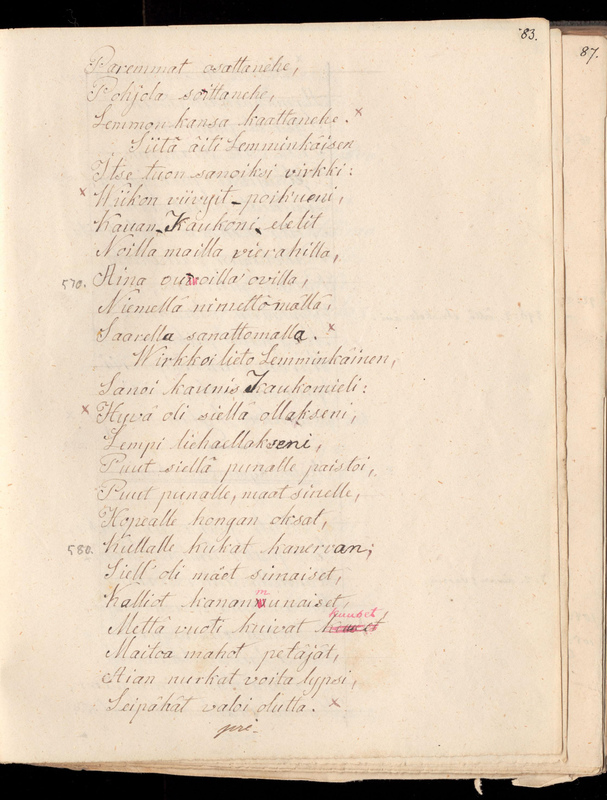 83.
87.
Paremmat osattanehe,
Pohjola soittanehe,
Lemmon kansa kaattanehe. ×
Siitä äiti Lemminkäisen
Itse tuon sanoiksi virkki:
× Wiikon viivyit poikueni,
Kauan Kaukoni elelit
Noilla mailla vierahilla,
570. Aina ouoilla ovilla,
Niemellä nimettömällä,
Saarella sanattomalla. ×
Wirkkoi lieto Lemminkäinen,
Sanoi kaunis Kaukomieli:
× Hyvä oli siellä ollakseni,
Lempi liehaellakseni,
Puut siellä punalle paistoi,
Puut punalle, maat sinelle,
Hopealle hongan oksat,
580. Kullalle kukat kanervan;
Siell' oli mäet simaiset,
Kalliot kananmunaiset,
Mettä vuoti kuivat kuuset
Maitoa mahot petäjät,
Aian nurkat voita lypsi,
Seipähät valoi olutta. ×